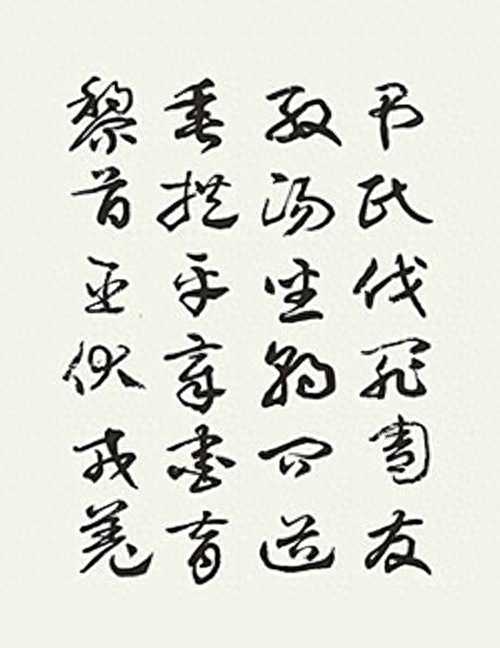 弔民伐罪周發
殷湯坐朝問道
垂拱平章愛育
黎首臣伏戎羌